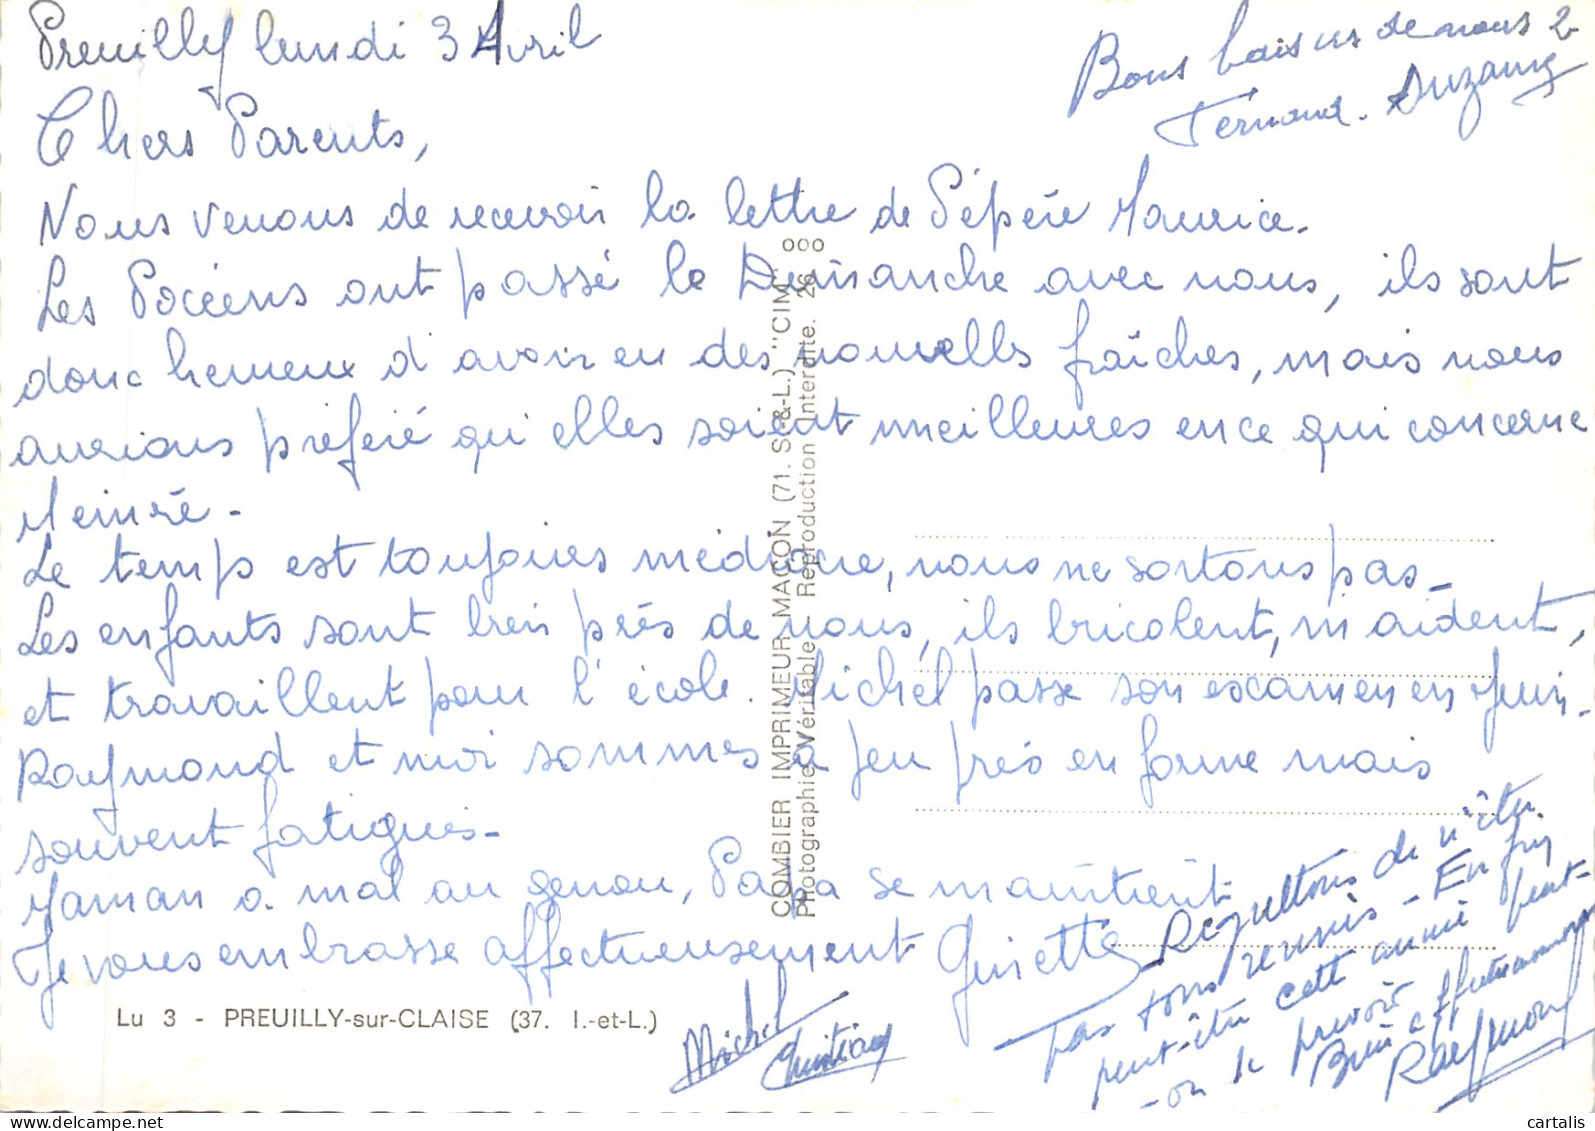 Preuilly lundi 3 Avril
Bons baisers de nous 2
Fernand. Suzanne
Chers Parents,
Nous venons de recevoir la lettre de Pépère Maurice.
Les Pocéens ont passé le Dimanche avec nous, ils sont
donc heureux d'avoir eu des nouvelles fraîches, mais nous
aurions préféré qu'elles soient meilleures en ce qui concerne
Mémé.
Le temps est toujours médiocre, nous ne sortons pas_
Les enfants sont bien près de nous, ils bricolent, m'aident,
et travaillent pour l'école. Michel passe son examen en juin.
Raymond et moi sommes à peu près en forme mais
souvent fatigués_
Maman a mal au genou, Papa se maintient
Je vous embrasse affectueusement Ginette
Michel
Christian
Regrettons de n'être
pas tous réunis - Enfin
peut-être cette année peut-
-on le prévoir
Bien affectueusement
Raymond
COMBIER IMPRIMEUR MACON (71. S.-&-L.) "CIM"
Photographie Véritable - Reproduction Interdite. 26 000
Lu 3 - PREUILLY-sur-CLAISE (37. I.-et-L.)
cartalis